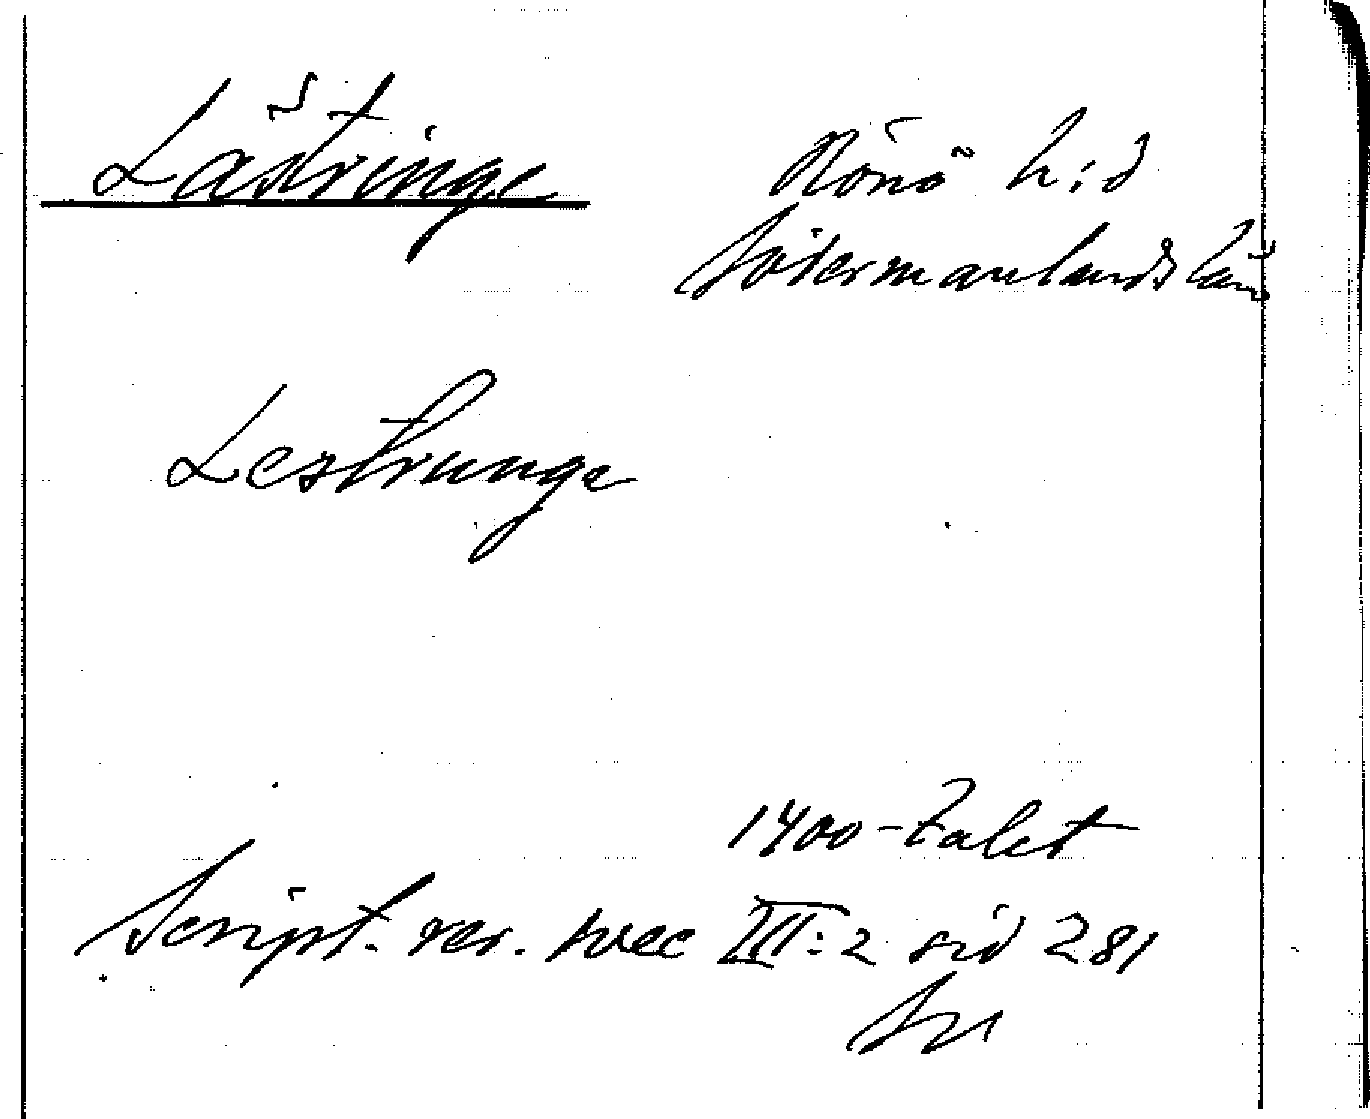 Lästringe
Rönö h:d
Södermanlands län
Lestrunge
1400-talet
Script. rer. svec III:2 sid 281